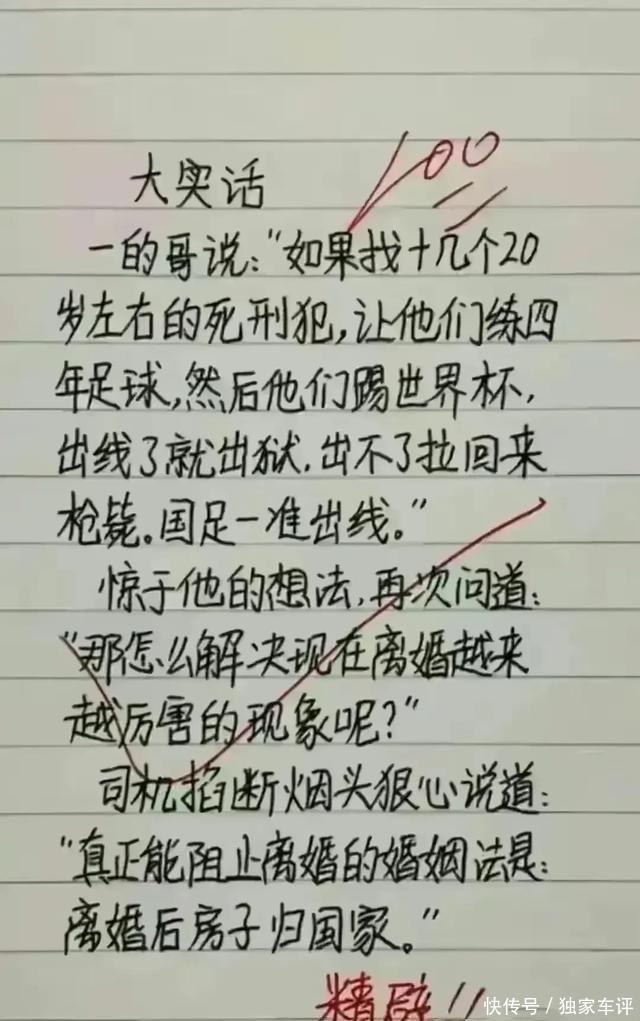 100
大实话
一的哥说:“如果找十几个20
岁左右的死刑犯,让他们练四
年足球,然后他们踢世界杯,
出线了就出狱,出不了拉回来
枪毙。国足一准出线。”
惊于他的想法,再次问道:
“那怎么解决现在离婚越来
越厉害的现象呢?”
司机掐断烟头狠心说道:
“真正能阻止离婚的婚姻法是:
离婚后房子归国家。”
精辟!!
快传号/独家车评